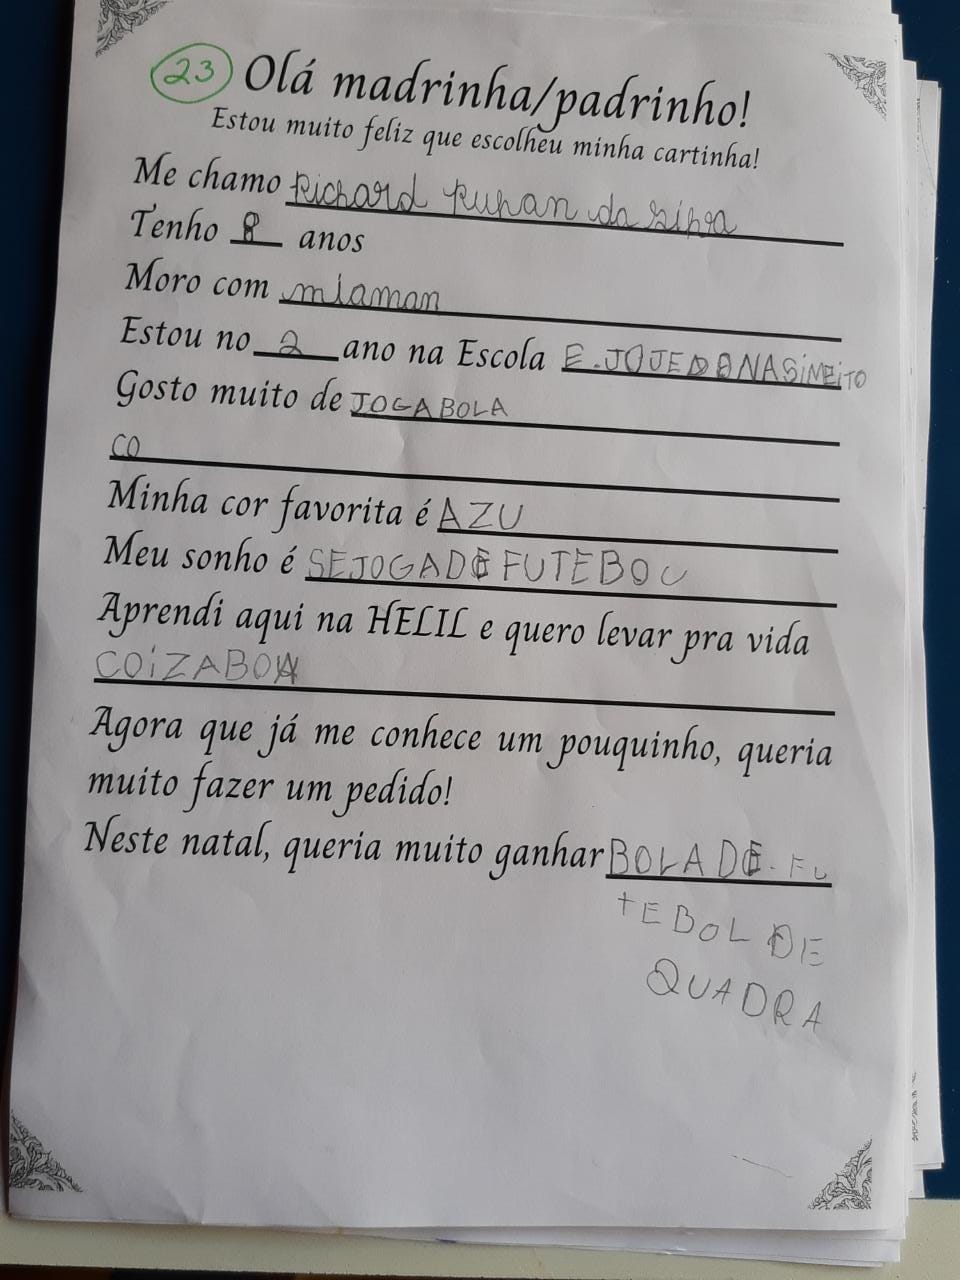 23 Olá madrinha/padrinho!
Estou muito feliz que escolheu minha cartinha!
Me chamo Richard Ruhan da Silva
Tenho 8 anos
Moro com miaman
Estou no 2 ano na Escola E.JOJEDONASiMEiTO
Gosto muito de JOGABOLA
CO
Minha cor favorita é AZU
Meu sonho é SEJOGADE FUTEBOU
Aprendi aqui na HELIL e quero levar pra vida
COiZABOA
Agora que já me conhece um pouquinho, queria
muito fazer um pedido!
Neste natal, queria muito ganhar BOLA DE. FU
TEBOL DE
QUADRA